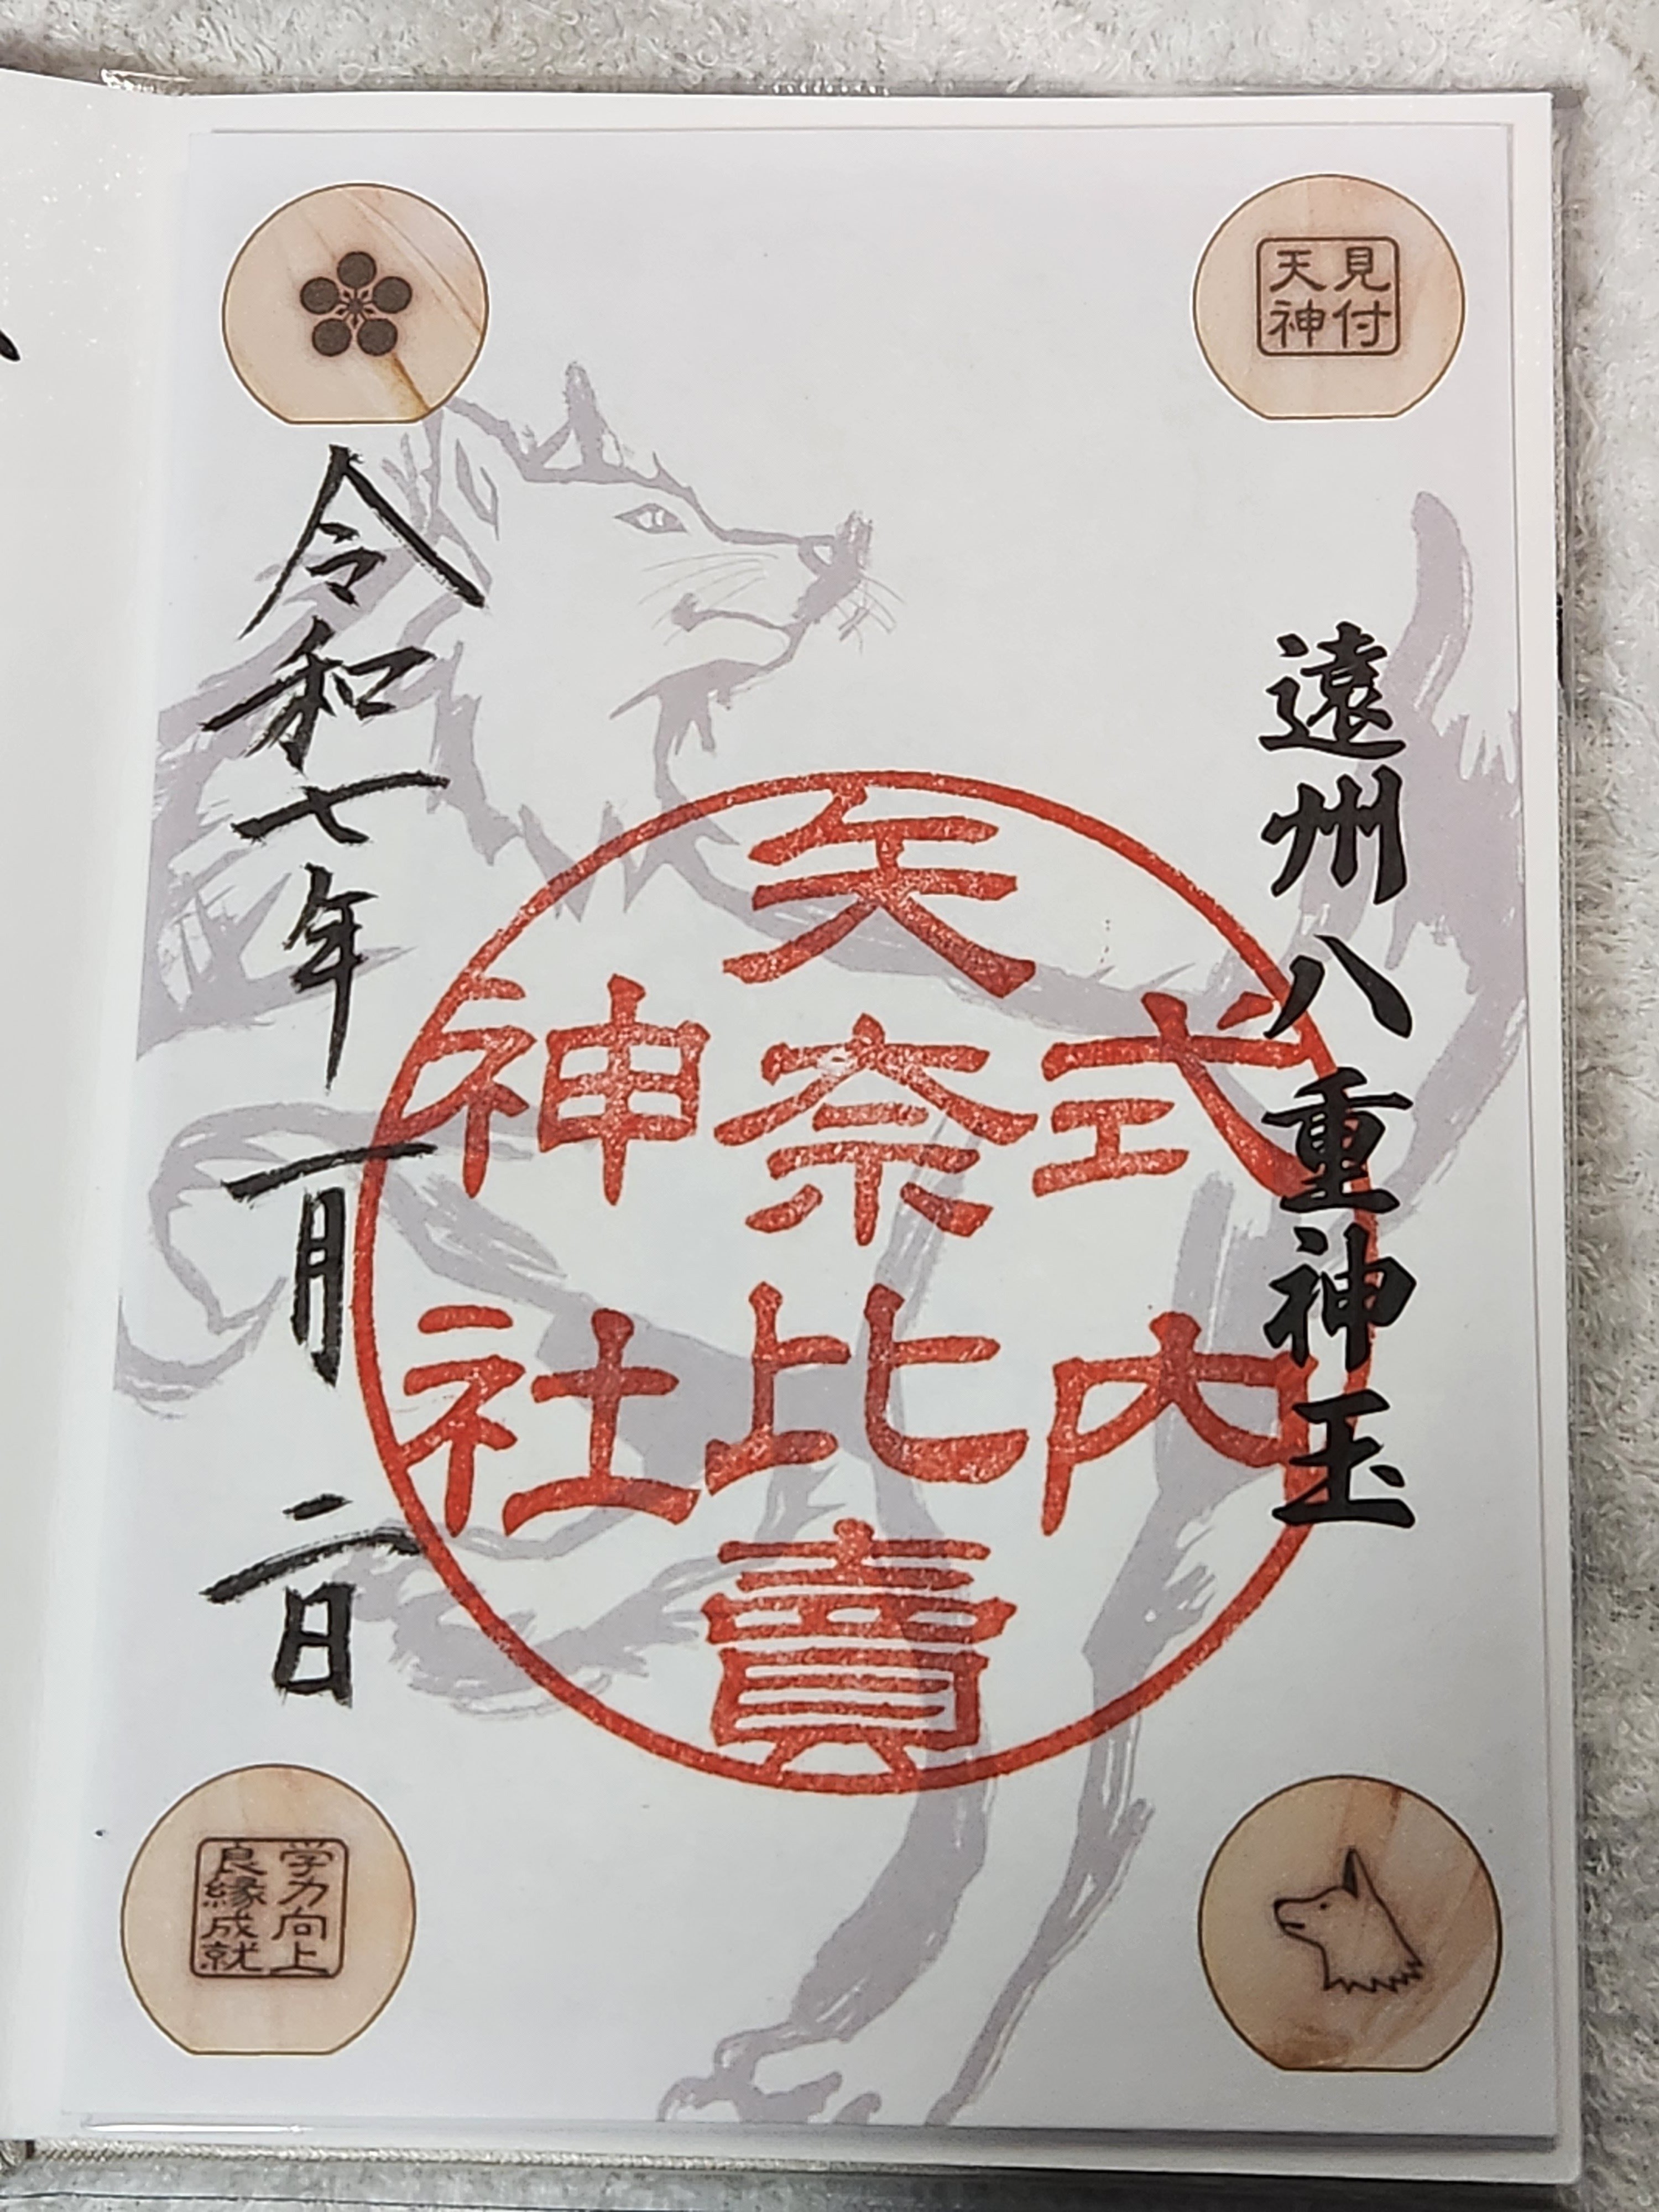 見付
天神
遠州八重神玉
式内
矢奈比賣
神社
令和七年一月二日
学力向上
良縁成就